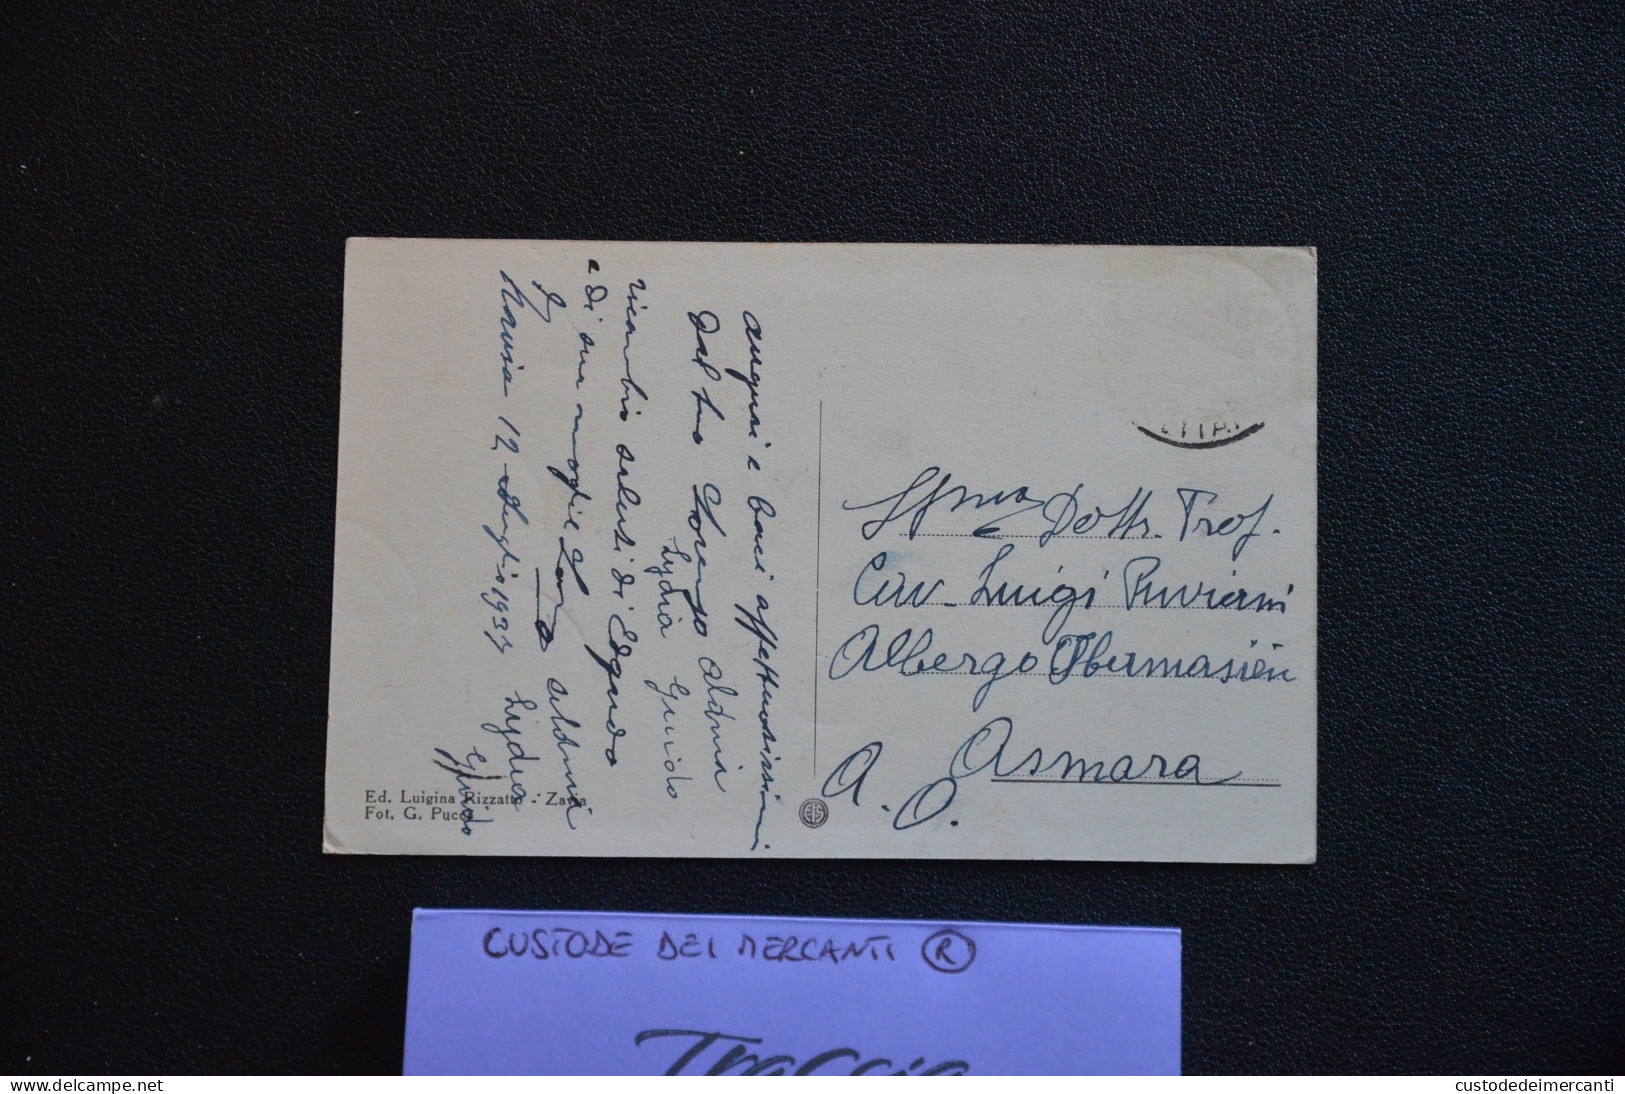 auguri e baci affettuosissimi
Dal tuo Lorenzo Aldina
Lydia Guido
ricambio saluti di Edgardo
e di sua moglie
Aldina
12 Luglio 1937 Lydia
Guido
Dottr. Prof.
Cav. Luigi Ruviani
Albergo
Asmara
A. O.
Ed. Luigina Rizzatto - Zavia
Fot. G. Pucci
CUSTODE DEI MERCANTI ®
Traccia
delcampe.net
custodedeimercanti